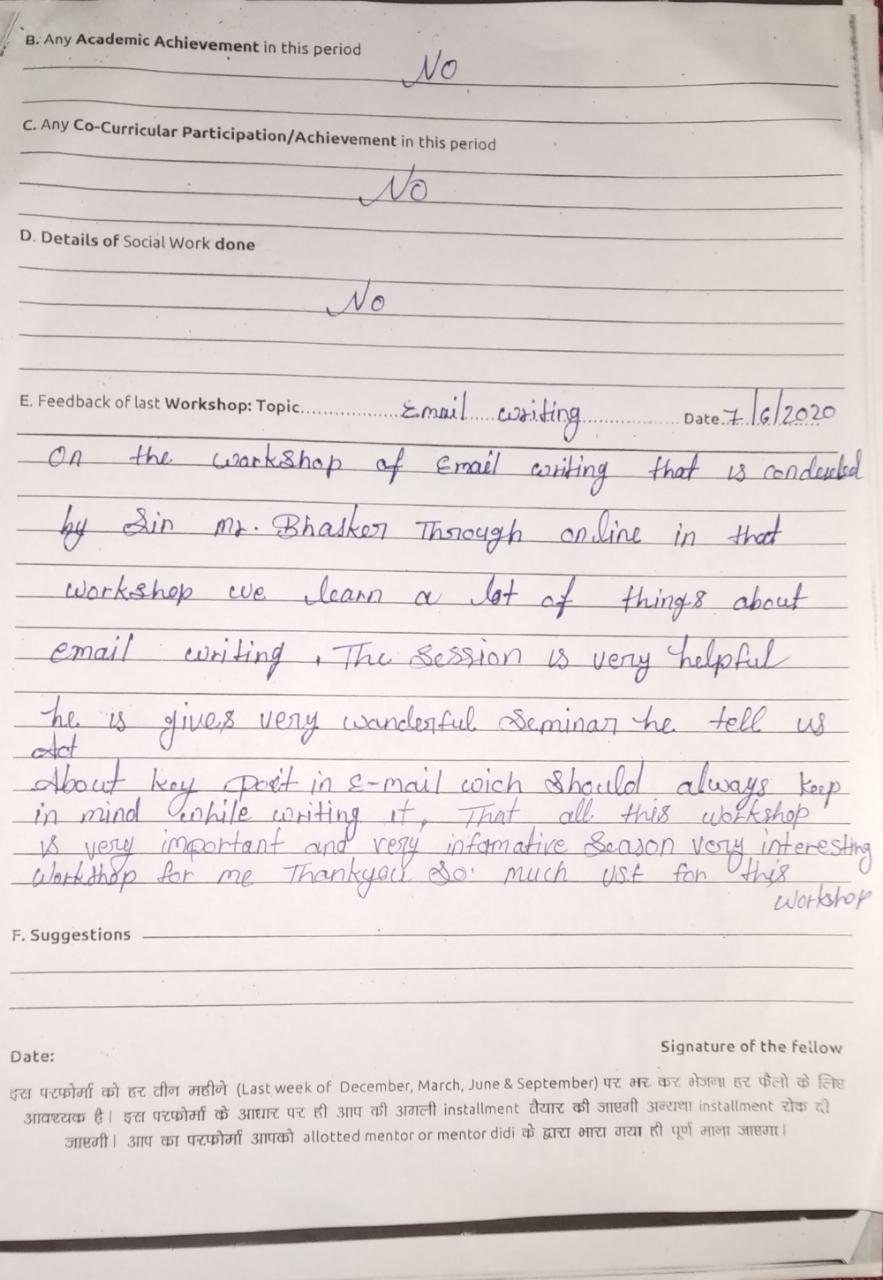 B. Any Academic Achievement in this period
No
C. Any Co-Curricular Participation/Achievement in this period
No
D. Details of Social Work done
No
E. Feedback of last Workshop: Topic.................Email.....writing.................... Date.7/6/2020
On the workshop of Email writing that is conducted
by Sir Mr. Bhasker Through online in that
workshop we learn a lot of things about
email writing. The Session is very helpful
he is gives very wanderful Seminar he tell us
About key poit in E-mail wich should always keep
in mind while writing it, That all this workshop
is very important and very infomative Season very interesting
Workshop for me Thankyou So much USF for this
workshop
F. Suggestions
Signature of the fellow
Date:
इस परफोर्मा को हर तीन महीने (Last week of December, March, June & September) पर भर कर भेजना हर फैलो के लिए
आवश्यक है। इस परफोर्मा के आधार पर ही आप की अगली installment तैयार की जाएगी अन्यथा installment रोक दी
जाएगी। आप का परफोर्मा आपको allotted mentor or mentor didi के द्वारा भारा गया ही पूर्ण माना जाएगा।